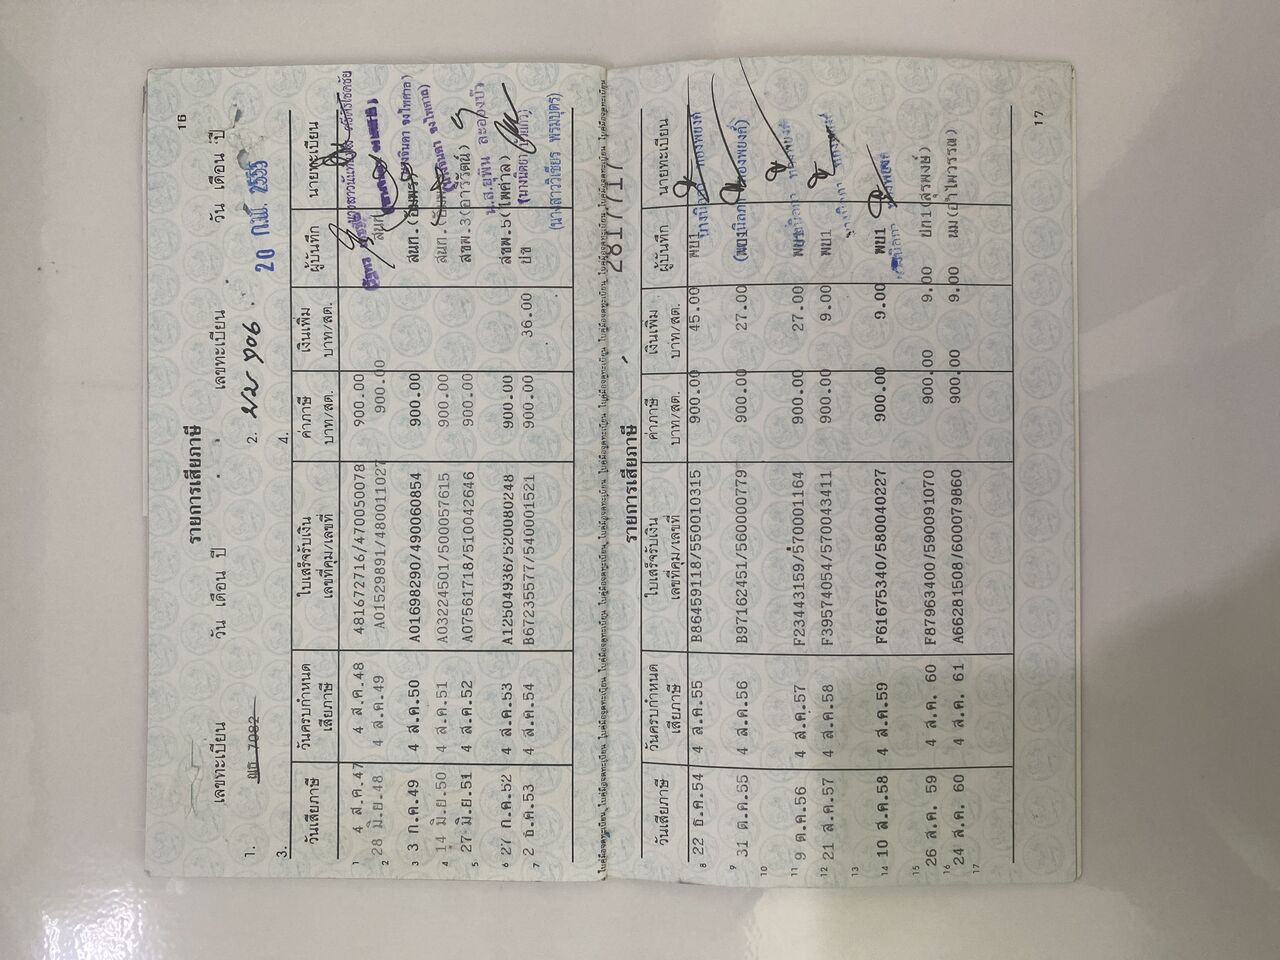 16
รายการเสียภาษี
เลขทะเบียน วัน เดือน ปี เลขทะเบียน วัน เดือน ปี
1. 7082 2. 906 20 ก.พ. 2553
3. 4.
วันเสียภาษี วันครบกำหนด เสียภาษี ใบเสร็จรับเงิน เลขที่คุม/เลขที่ ค่าภาษี บาท/สต. เงินเพิ่ม บาท/สต. ผู้บันทึก นายทะเบียน
1 4 ส.ค.47 4 ส.ค.48 481672716/470050078 900.00
2 28 มิ.ย.48 4 ส.ค.49 A01529891/480011027 900.00 สนก
3 3 ก.ค.49 4 ส.ค.50 A01698290/490060854 900.00 สนก.(อัมพร)
4 14 มิ.ย.50 4 ส.ค.51 A03224501/500057615 900.00 สนก.
5 27 มิ.ย.51 4 ส.ค.52 A07561718/510042646 900.00 สขพ.3(อารีรัตน์)
น.ส.ยุพิน ละอองบัว
6 27 ก.ค.52 4 ส.ค.53 A12504936/520080248 900.00 สขพ.5(ไพศาล)
7 2 ธ.ค.53 4 ส.ค.54 B67235577/540001521 900.00 36.00 ปช
(นางสาววิเชียร พรมบุตร)
ใบคู่มือจดทะเบียน ใบคู่มือจดทะเบียน ใบคู่มือจดทะเบียน ใบคู่มือจดทะเบียน ใบคู่มือจดทะเบียน ใบคู่มือจดทะเบียน
2817717
รายการเสียภาษี
วันเสียภาษี วันครบกำหนด เสียภาษี ใบเสร็จรับเงิน เลขที่คุม/เลขที่ ค่าภาษี บาท/สต. เงินเพิ่ม บาท/สต. ผู้บันทึก นายทะเบียน
8 22 ธ.ค.54 4 ส.ค.55 B86459118/550010315 900.00 45.00 พย1
9 31 ต.ค.55 4 ส.ค.56 B97162451/5600000779 900.00 27.00 พย1
10
11 9 ต.ค.56 4 ส.ค.57 F23443159/570001164 900.00 27.00 พย1
12 21 ส.ค.57 4 ส.ค.58 F39574054/570043411 900.00 9.00 พย1
13
14 10 ส.ค.58 4 ส.ค.59 F61675340/580040227 900.00 9.00 พย1
15 26 ส.ค. 59 4 ส.ค. 60 F87963400/590091070 900.00 9.00 ปภ1(สุรพงษ์)
16 24 ส.ค. 60 4 ส.ค. 61 A66281508/6000079860 900.00 9.00 นม(อำไพวรรณ)
17
17